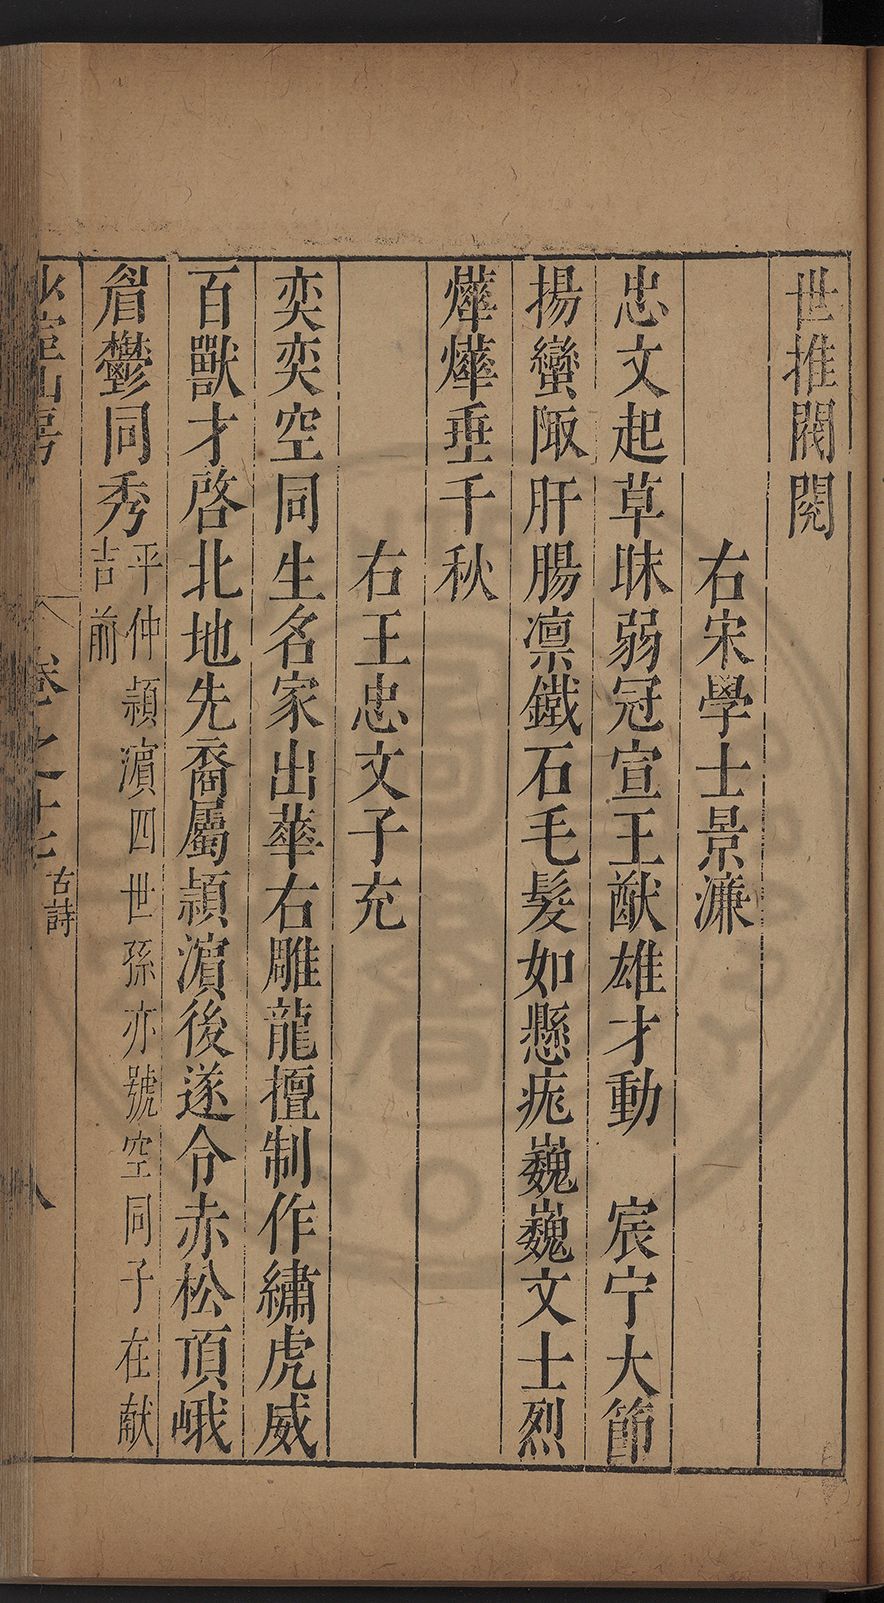 世推閥閱
右宋學士景濂
忠文起草昧弱冠宣王猷雄才動　宸宁大節
揚蠻陬肝腸凛鐵石毛髮如懸疣巍巍文士烈
燁燁垂千秋
右王忠文子充
奕奕空同生名家出華右雕龍擅制作繡虎威
百獸才啓北地先裔屬頴濵後遂令赤松頂峨
眉鬱同秀
平仲頴濵四世孫亦號空同子在献
吉前
室山房
卷之十
古詩
八